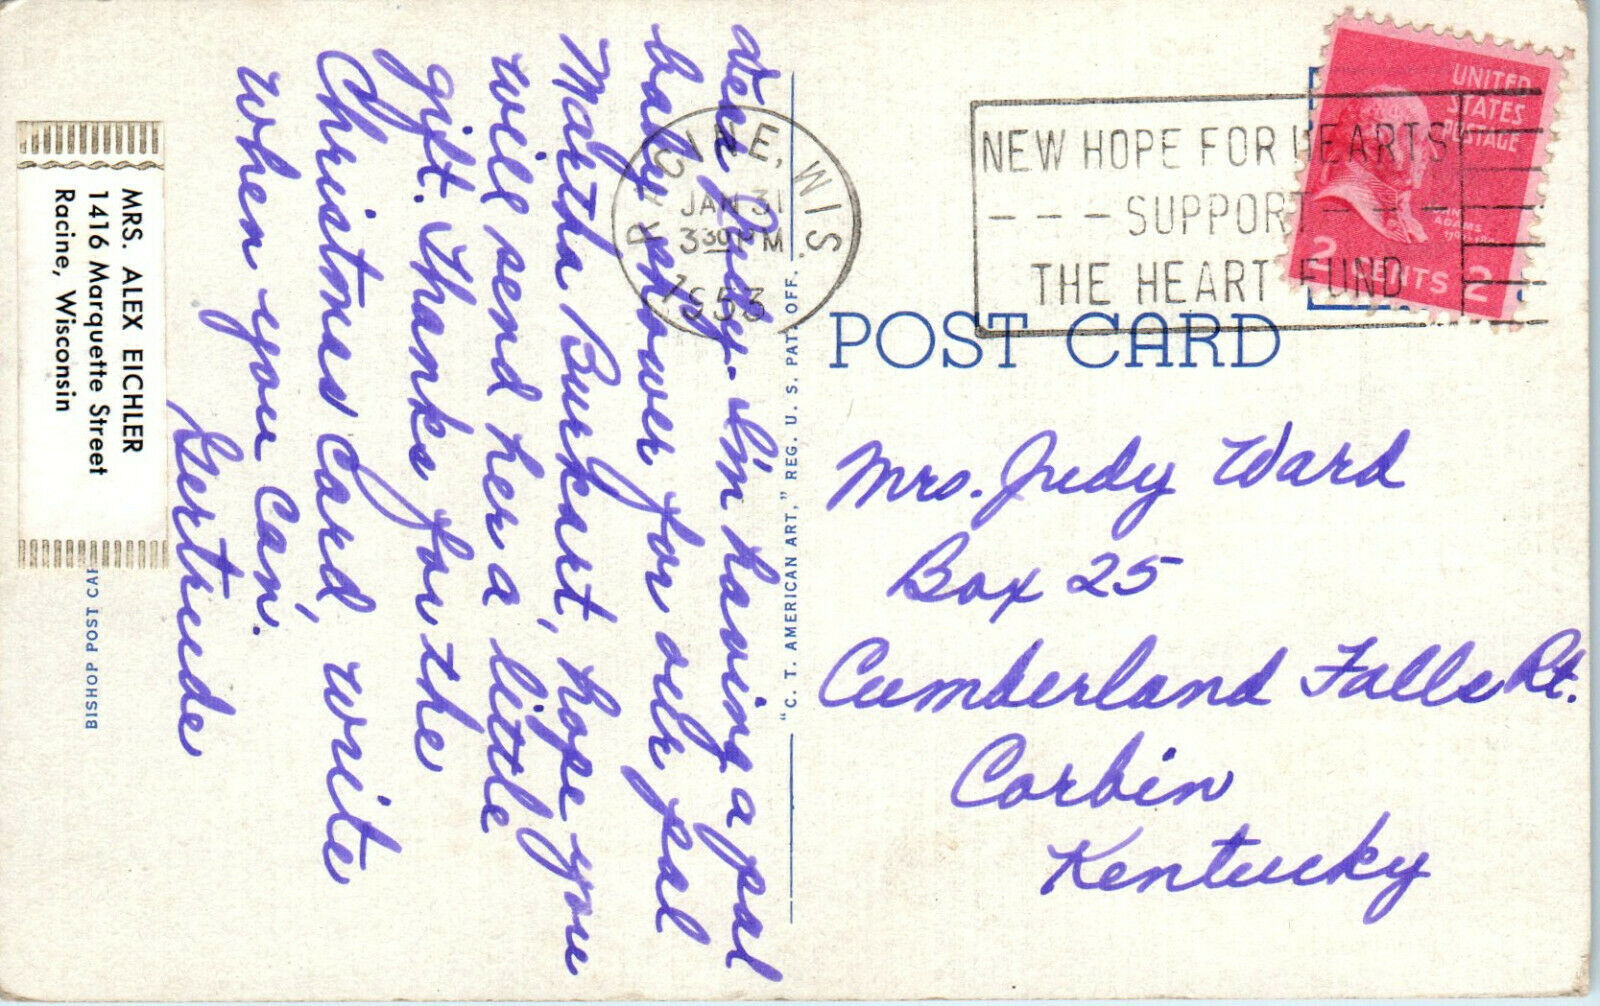 Dear Judy - I'm having a pal
baby shower for our pal
Martha Burkart, hope you
will send her a little
gift. Thanks for the
Christmas card, write
when you can.
Gertrude
MRS. ALEX EICHLER
1416 Marquette Street
Racine, Wisconsin
BISHOP POST CAR
"C. T. AMERICAN ART," REG. U. S. PAT. OFF.
RACINE, WIS.
JAN 31
3 30 PM
1953
NEW HOPE FOR HEARTS
- - - SUPPORT - - -
THE HEART FUND
UNITED
STATES
POSTAGE
JOHN
ADAMS
2 CENTS 2
POST CARD
Mrs. Judy Ward
Box 25
Cumberland Falls Rt.
Corbin
Kentucky